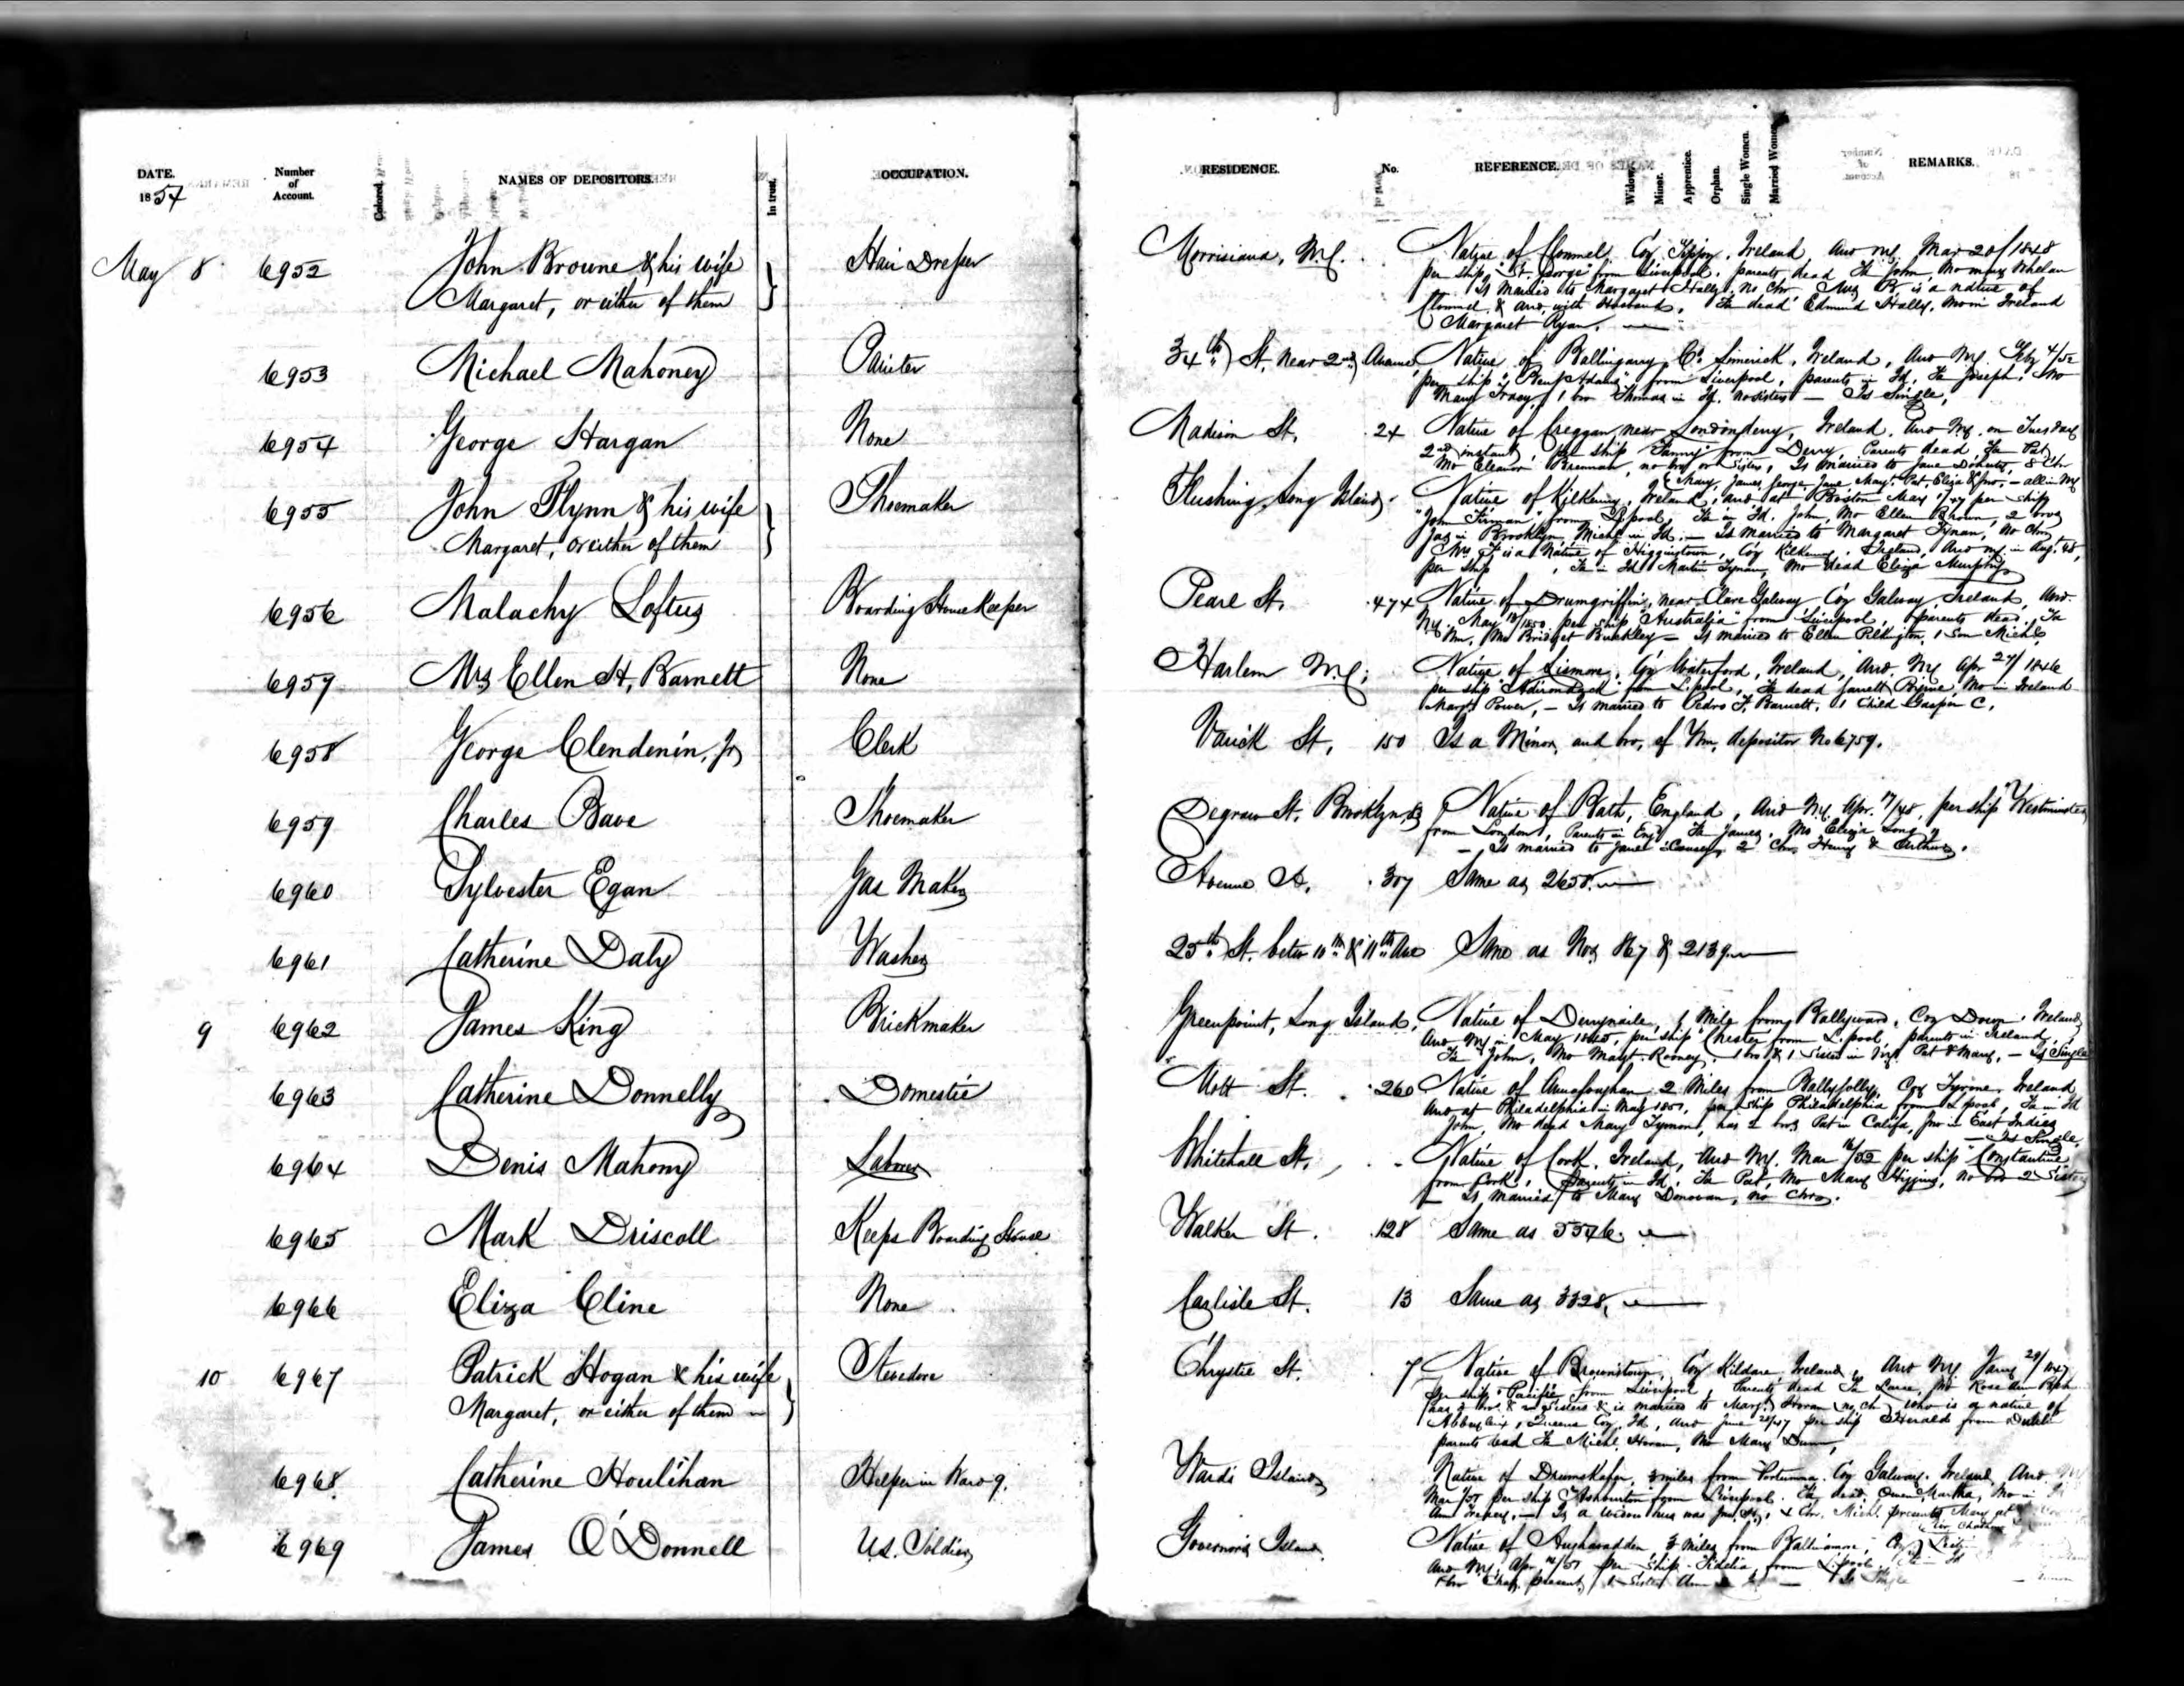 DATE. Number of Account. Colored. NAMES OF DEPOSITORS. In trust. OCCUPATION. RESIDENCE. No. REFERENCE. Widow. Minor. Apprentice. Orphan. Single Women. Married Women. REMARKS.
1854
May 8 6952 John Browne & his wife Hair Dresser Morrisiana, N.Y. Native of Clonmel, Coy Tippy, Ireland, Arrd NY, Mar 20/1848
Margaret, or either of them per ship "St. George" from Liverpool, parents dead Fa John, Mo Mary Whelan
Is married to Margaret Hally, no Chn Mrs B. is a native of
Clonmel & arrd with Husband, Fa dead Edmund Hally, Mo in Ireland
Margaret Ryan.
6953 Michael Mahoney Painter 34th St. near 2nd Avenue Native of Ballingarry Co. Limerick, Ireland, Arrd NY. Feby 4/52
per ship "Benj Adams" from Liverpool, parents in Id, Fa Joseph, Mo
Mary Tracy, 1 bro Thomas in Id. no sisters — Is Single,
6954 George Hargan None Madison St. 24 Native of Creggan near Londonderry, Ireland. Arrd NY. on Tuesday
2nd instant, per ship "Fanny" from Derry, Parents dead, Fa Pat,
Mo Eleanor Brennan, no bros or Sisters, Is married to Jane Doherty, 8 Chn
Mary, James, George, Jane, Margt. Pat, Eliza & Jno. — all in NY
6955 John Flynn & his wife Shoemaker Flushing, Long Island. Native of Kilkenny, Ireland, arrd at Boston May /47 per ship
Margaret, or either of them "John Firman" from L.pool, Fa in Id. John, Mo Ellen Brown, 2 bros
Jas in Brooklyn, Michl in Id. — Is Married to Margaret Tynan, No Chn
Mrs F is a Native of Higginstown, Coy Kilkenny, Ireland, Arrd NY. in Augt. 48,
per ship , Fa in Id Martin Tynan, Mo dead Eliza Murphy
6956 Malachy Loftus Boarding House Keeper Pearl St. 474 Native of Drumgriffin, near Clare Galway Coy Galway, Ireland, Arrd
NY. May 18/1850. per ship "Australia" from Liverpool, parents dead, Fa
Wm, Mo Bridget Buckley — Is married to Ellen Pilkington, 1 Son Michl
6957 Mrs Ellen H. Barnett None Harlem N.Y. Native of Lismore, Coy Waterford, Ireland, Arrd. NY Apr 27/1846
per ship "Adirondack" from L.pool, Fa dead Garrett Byrne, Mo in Ireland
Margt Power, — Is married to Pedro F. Barnett, 1 Child Gasper C.
6958 George Clendenin, Jr Clerk Varick St. 150 Is a Minor, and bro, of Wm, depositor No 6759.
6959 Charles Bave Shoemaker Degraw St. Brooklyn, 83 Native of Bath, England, Arrd NY. Apr. 17/48, per ship "Westminster"
from London, Parents in Engd Fa James, Mo Eliza Long
— Is married to Janet Causey, 2 Chn Henry & Arthur.
6960 Sylvester Egan Gas Maker Avenue A. 307 Same as 2658.
6961 Catherine Daly Washer 25th St. betw 10th & 11th Ave Same as Nos 867 & 2139.
9 6962 James King Brickmaker Greenpoint, Long Island, Native of Derrynaile, 1 Mile from Ballyward, Coy Down, Ireland
Arrd NY in May 1845, per ship "Chester from L.pool, parents in Ireland,
Fa John, Mo Margt. Rooney, 1 bro & 1 Sister in Pat & Mary, — Is Single
6963 Catherine Donnelly Domestic Mott St. 260 Native of 2 Miles from Ballyfolly, Coy Tyrone, Ireland
Arrd at Philadelphia in May 1851, per ship Philadelphia from L pool, Fa in Id
John, Mo dead Mary Tymon, has 2 bros Pat in Califa, Jno in East Indies
— Is Single.
6964 Denis Mahony Laborer Whitehall St. Native of Cork, Ireland, Arrd NY. Mar 16/52 per ship "Constantine
from Cork, Parents in Id, Fa Pat, Mo Mary Higgins, no bro 2 Sisters
Is married to Mary Donovan, no Chn.
6965 Mark Driscoll Keeps Boarding House Walker St. 128 Same as 5546.
6966 Eliza Cline None Carlisle St. 13 Same as 3328.
10 6967 Patrick Hogan & his wife Stevedore Chrystie St. 7 Native of Brownstown, Coy Kildare, Ireland, Arrd NY Jany 29/1847
Margaret, or either of them per ship "Pacific from Liverpool, Parents dead Fa Mo Rose Ann
has bro & Sisters & is married to Margt Horan, no Ch, who is a native of
Abbeyleix, Queens Coy, Id, Arrd June 26/47 per ship Herald from Dublin
parents dead Fa Michl. Horan, Mo Mary Dunn,
6968 Catherine Houlihan Helper in Ward 9. Wards Island Native of Drumskafer, 3 miles from Portumna, Coy Galway, Ireland, Arrd
Mar /51 per ship "Ashburton from Liverpool. Fa dead, Owen Martha, Mo in
Ann Is a widow was Jno. H., Chn, Michl present, Mary
6969 James O'Donnell U.S. Soldier Governor's Island. Native of Aughavadden, 3 miles from Ballinamore, Coy
Arrd NY. Apr /51 per ship Fidelia, from L.pool,
bro Chas, present, 1 Sister Ann — Is Single